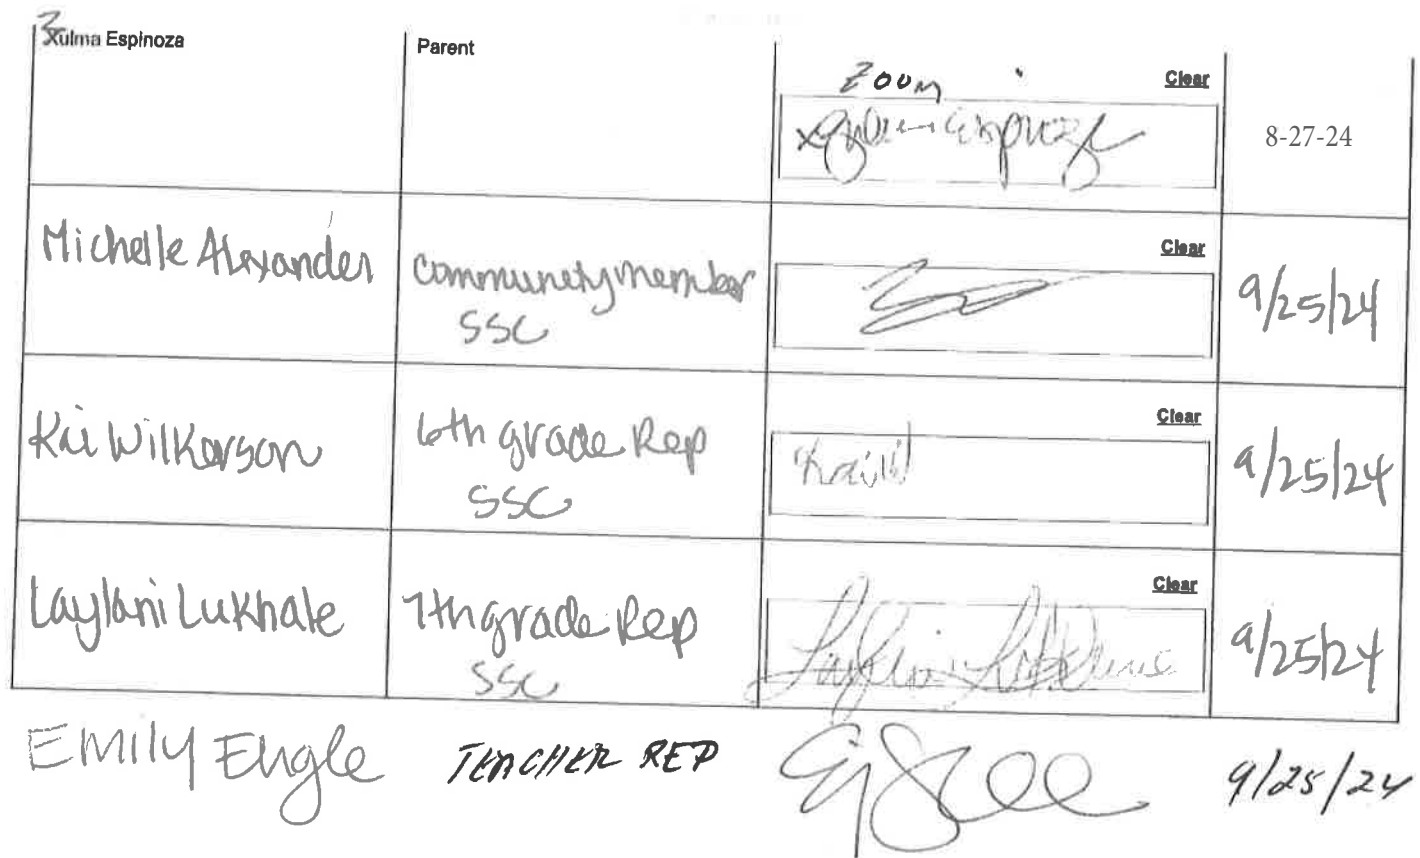 Zulma Espinoza
Parent
Zoom
Clear
8-27-24
Michelle Alexander
Community member
SSC
Clear
9/25/24
Kai Wilkerson
6th grade Rep
SSC
Clear
Kai W
9/25/24
Laylani Lukhale
7th grade Rep
SSC
Clear
9/25/24
Emily Engle
TEACHER REP
9/25/24